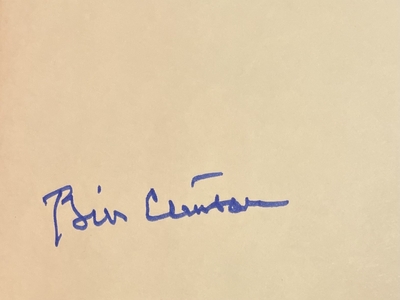 Bill Clinton